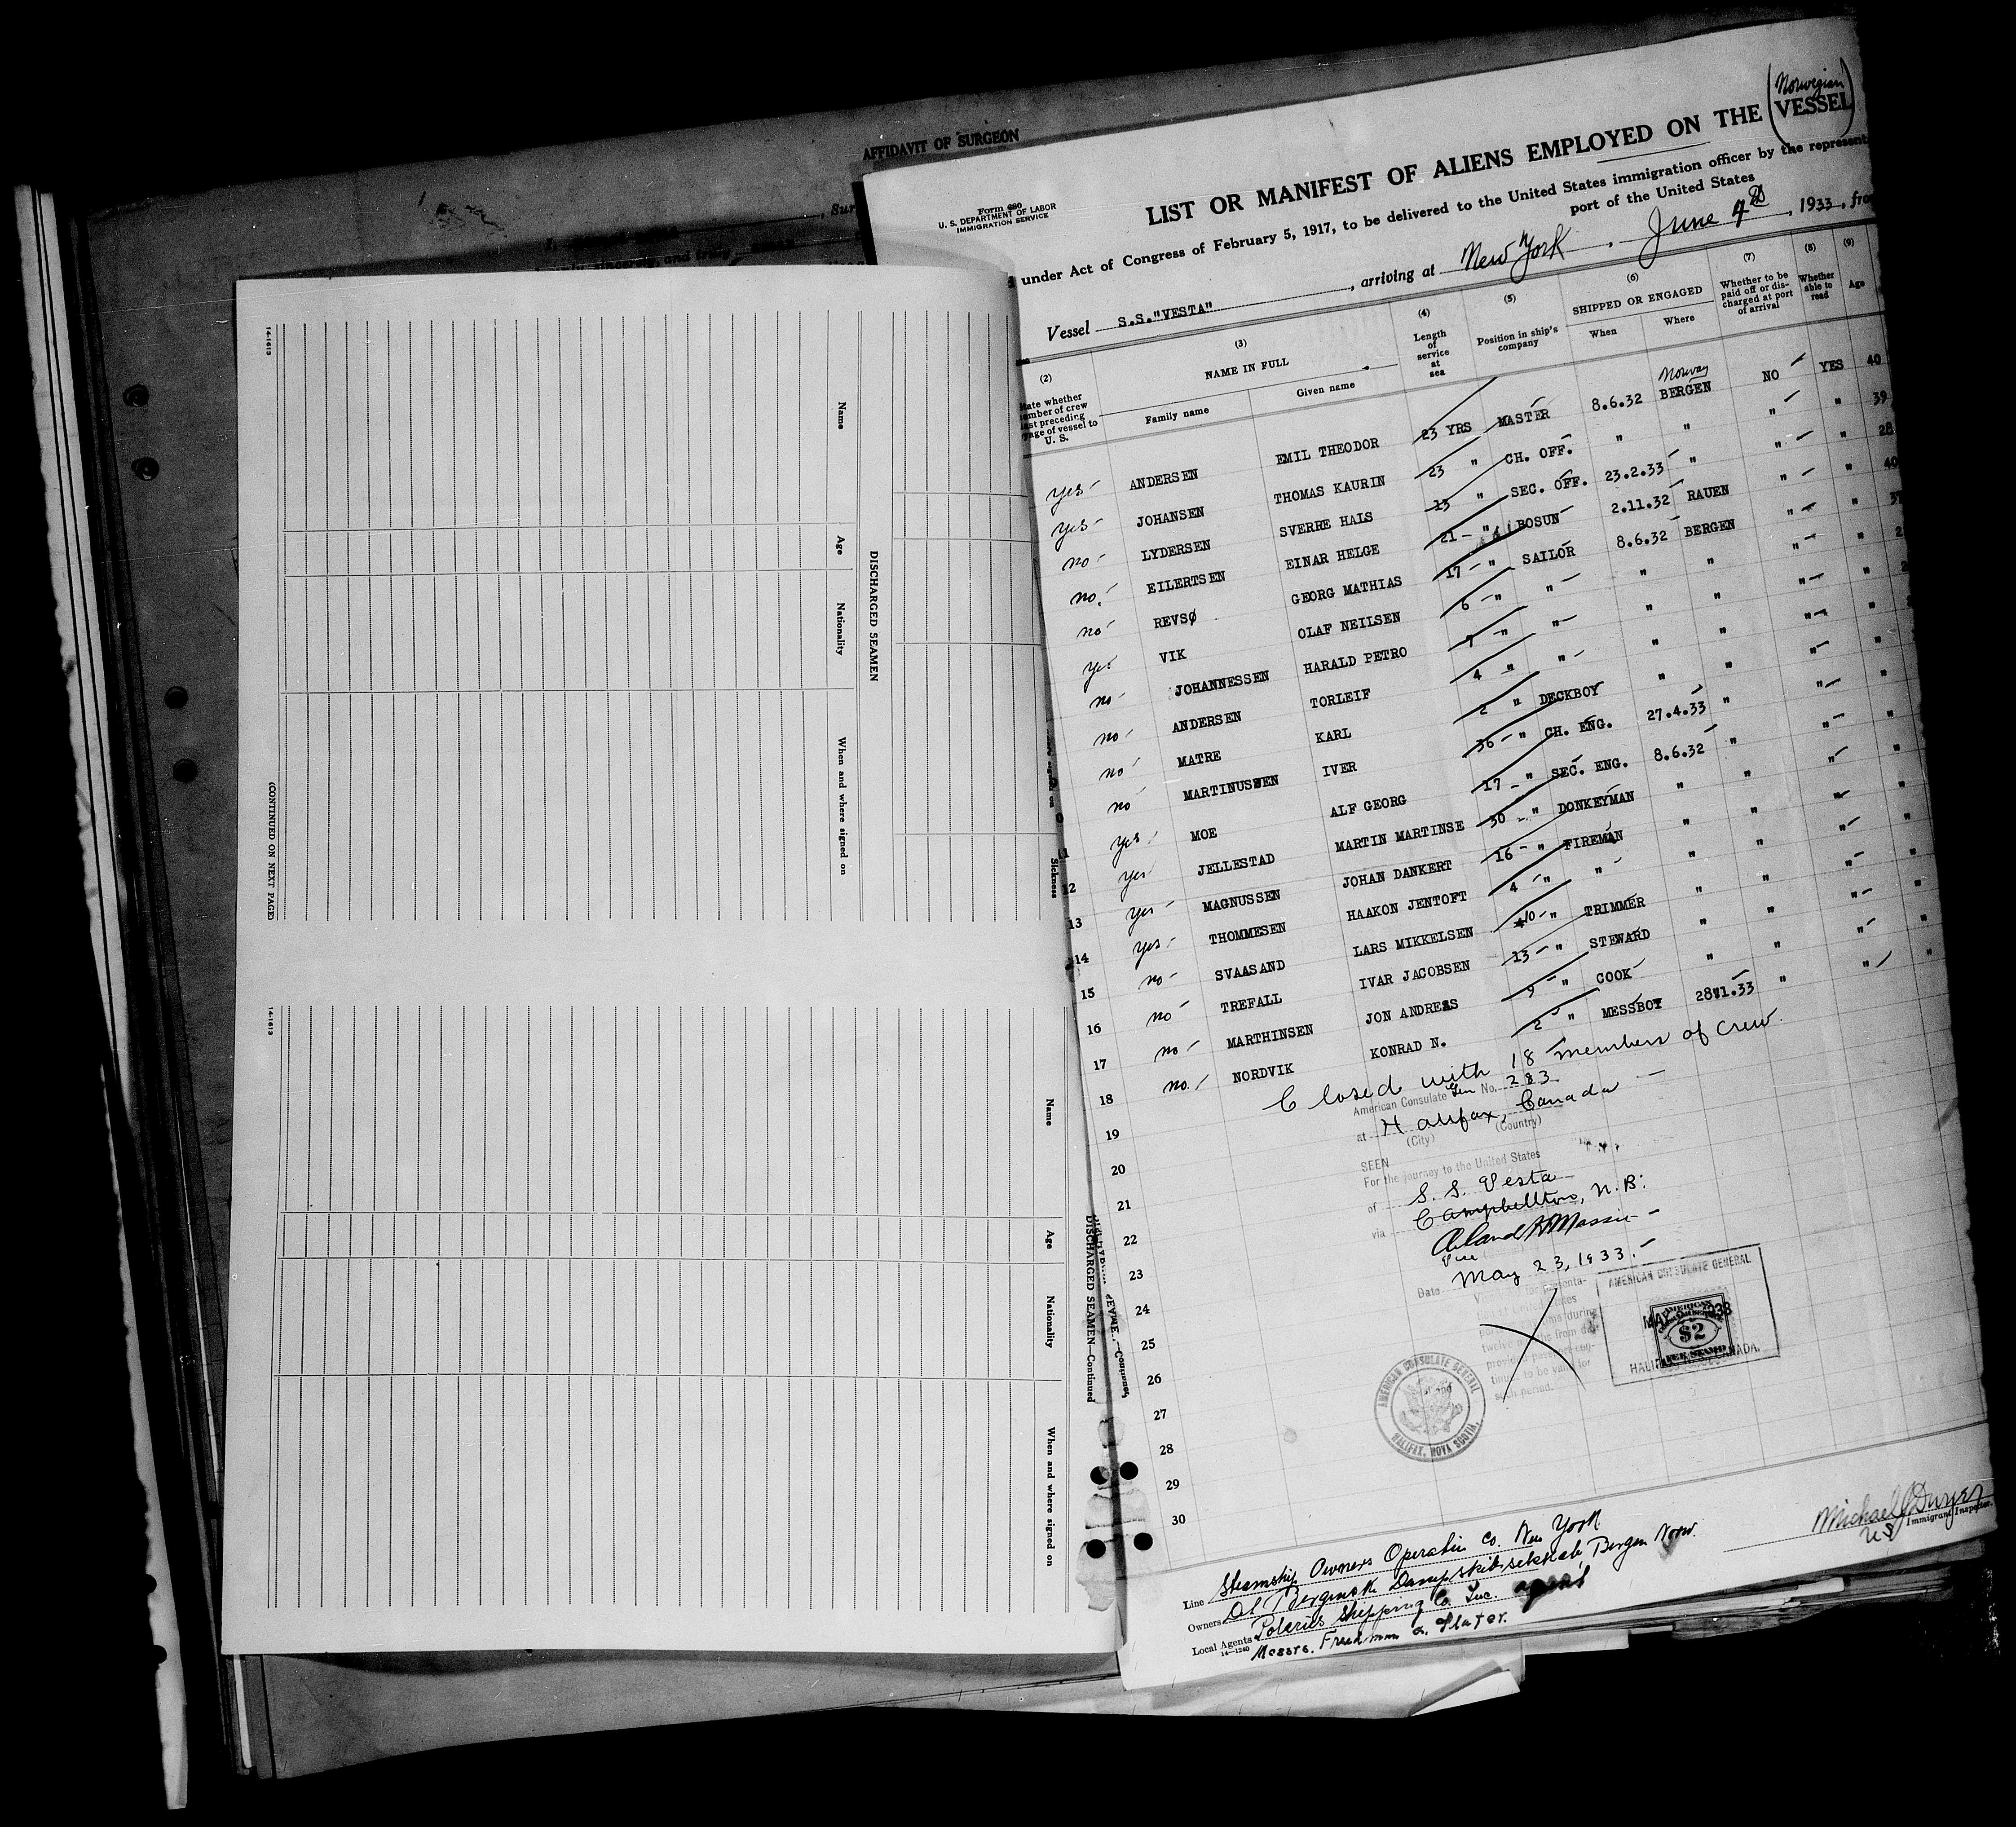 AFFIDAVIT OF SURGEON
, Sur
sincerely, and truly
Form 680
U. S. DEPARTMENT OF LABOR
IMMIGRATION SERVICE
LIST OR MANIFEST OF ALIENS EMPLOYED ON THE (Norwegian) VESSEL
under Act of Congress of February 5, 1917, to be delivered to the United States immigration officer by the represent
port of the United States
Vessel S.S."VESTA" , arriving at New York , June 4th , 1933, fro
(2) (3) (4) (5) (6) (7) (8) (9)
ate whether
ember of crew
ast preceding
yage of vessel to
U. S.
NAME IN FULL
Family name Given name
Length
of
service
at
sea
Position in ship's
company
SHIPPED OR ENGAGED
When Where
Whether to be
paid off or dis-
charged at port
of arrival
Whether
able to
read
Age
Norway
yes ANDERSEN EMIL THEODOR 23 YRS MASTER 8.6.32 BERGEN NO YES 40
yes JOHANSEN THOMAS KAURIN 23 " CH. OFF. " " " " 39
no LYDERSEN SVERRE HALS 13 " SEC. OFF. 23.2.33 " " " 28
no. EILERTSEN EINAR HELGE 21 - " BOSUN 2.11.32 RAUEN " " 40
no REVSØ GEORG MATHIAS 17 - " SAILOR 8.6.32 BERGEN " "
yes VIK OLAF NEILSEN 6 - " " " " " "
no JOHANNESSEN HARALD PETRO 7 " " " " " "
no ANDERSEN TORLEIF 4 " " " " " "
no MATRE KARL 2 " DECKBOY " " " "
no MARTINUSSEN IVER 36 - " CH. ENG. 27.4.33 " " "
11 yes MOE ALF GEORG 17 - " SEC. ENG. 8.6.32 " " "
12 yes JELLESTAD MARTIN MARTINSE 30 - " DONKEYMAN " " " "
13 yes MAGNUSSEN JOHAN DANKERT 16 - " FIREMAN " " " "
14 yes THOMMESEN HAAKON JENTOFT 4 - " " " " " "
15 no SVAASAND LARS MIKKELSEN 10 - " TRIMMER " " " "
16 no TREFALL IVAR JACOBSEN 13 - " STEWARD " " " "
17 no MARTHINSEN JON ANDREAS 9 - " COOK " " " "
18 no. NORDVIK KONRAD N. 2 " MESSBOY 28.1.33 " " "
19 Closed with 18 members of crew.
American Consulate Gen No. 283
20 at Halifax, Canada
(City) (Country)
21 SEEN
For the journey to the United States
22 of S. S. Vesta
23 via Campbellton, N.B.
24 Vice
25 Date May 23, 1933.
26
27
28
29
30
AMERICAN CONSULATE GENERAL
AMERICAN
$2
FEE STAMP
HALIFAX, N.S. CANADA.
AMERICAN CONSULATE GENERAL
HALIFAX, NOVA SCOTIA.
Line Steamship Owners Operatin Co. New York
Owners Det Bergenske Dampskibsselskab, Bergen Norw.
Local Agents Polarius Shipping Co Inc. agent
14-1240 Messrs. Freedman & Slater.
Michael J Dwyer
US Immigrant Inspector.
14-1613
Name Age Nationality When and where signed on
DISCHARGED SEAMEN
(CONTINUED ON NEXT PAGE)
Sickness
14-1613
Name Age Nationality When and where signed on
DISCHARGED SEAMEN—Continued